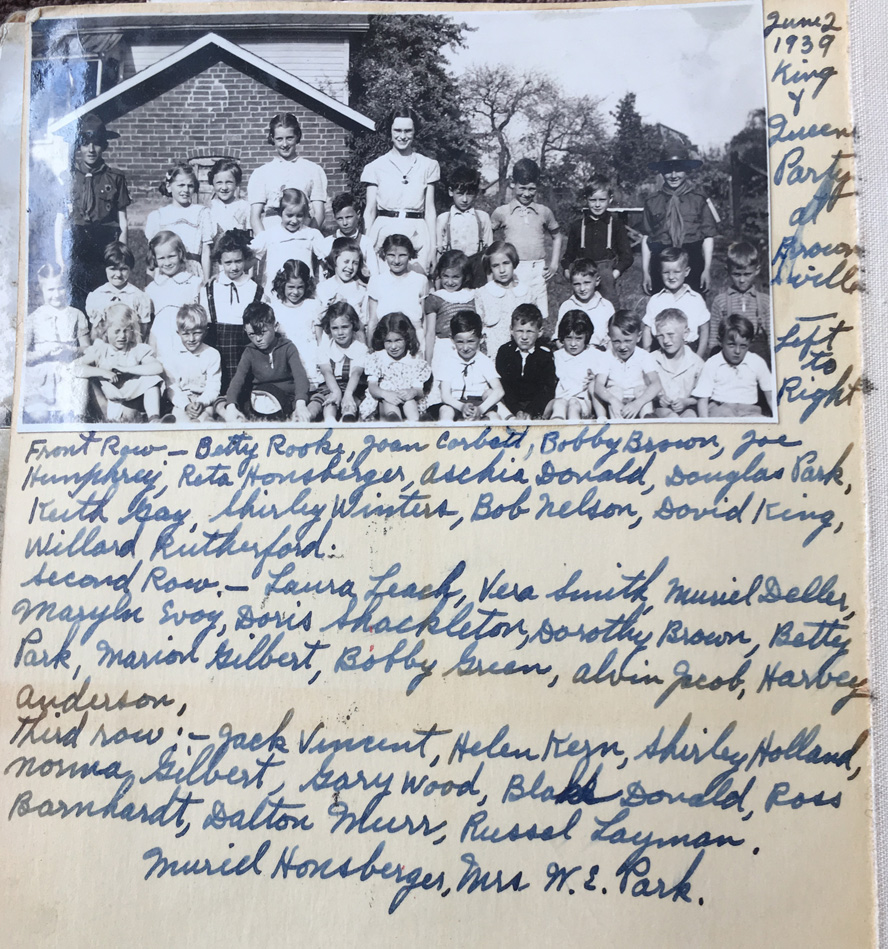 June 2
1939
King
&
Queen
Party
at
Brown
sville
—
Left
to
Right
Front Row — Betty Rooke, Joan Corbett, Bobby Brown, Joe
Humphrey, Reta Honsberger, Aschia Donald, Douglas Park,
Keith Gay, Shirley Winters, Bob Nelson, David King,
Willard Rutherford.
Second Row. — Laura Leach, Vera Smith, Muriel Deller,
Maryln Evoy, Doris Shackleton, Dorothy Brown, Betty
Park, Marion Gilbert, Bobby Green, Alvin Jacob, Harvey
Anderson,
Third row :- Jack Vincent, Helen Kern, Shirley Holland,
Norma Gilbert, Gary Wood, Blake Donald, Ross
Barnhardt, Dalton Murr, Russel Layman.
Muriel Honsberger, Mrs W.E. Park.